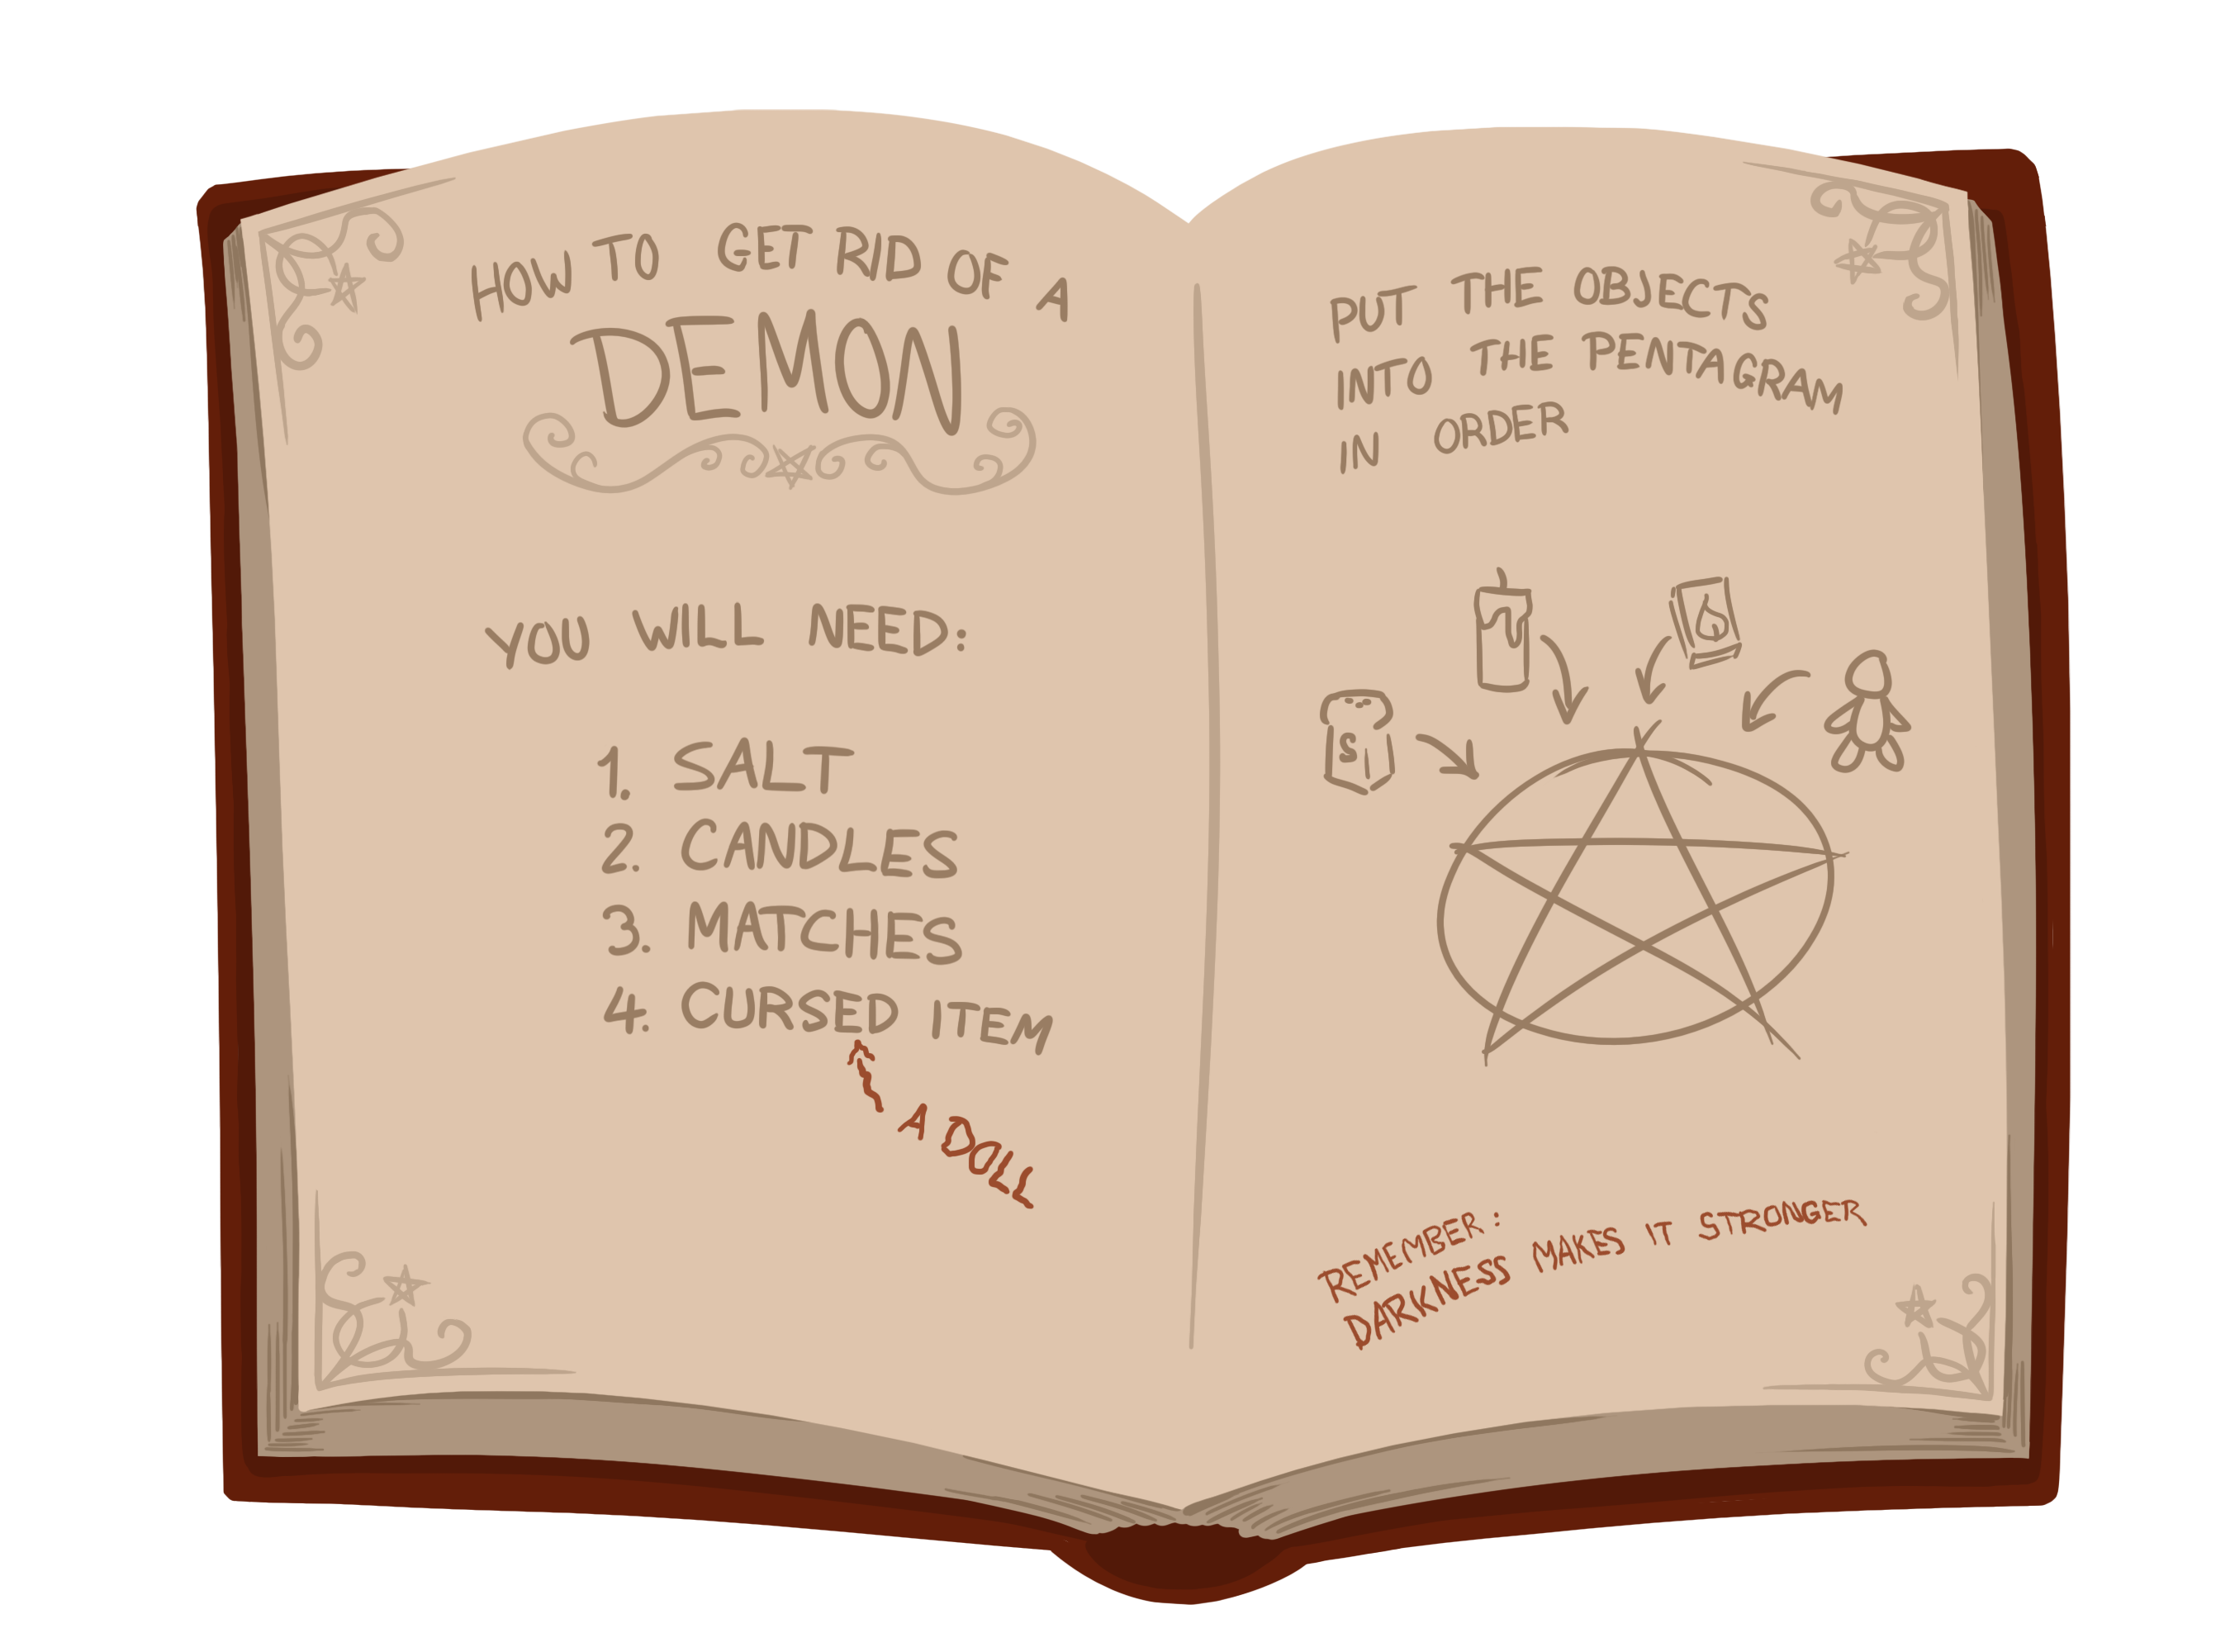 HOW TO GET RID OF A
DEMON
YOU WILL NEED:
1. SALT
2. CANDLES
3. MATCHES
4. CURSED ITEM
A DOLL
PUT THE OBJECTS
INTO THE PENTAGRAM
IN ORDER
S
REMEMBER:
DARKNESS MAKES IT STRONGER